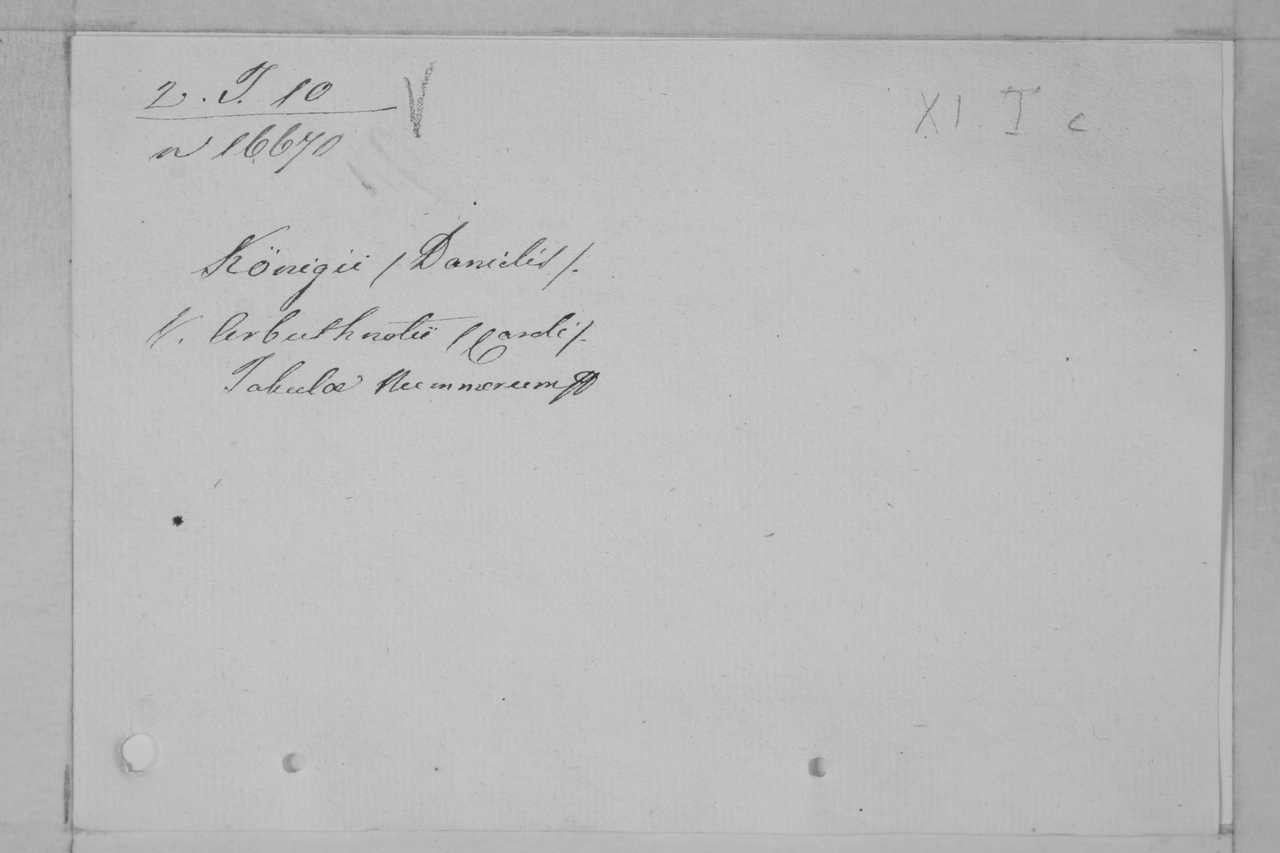 2. T. 10 V
n 16670
XI I c
Königii / Danielis /.
V. Arbuthnotii / Caroli /.
Tabulæ Nummorum